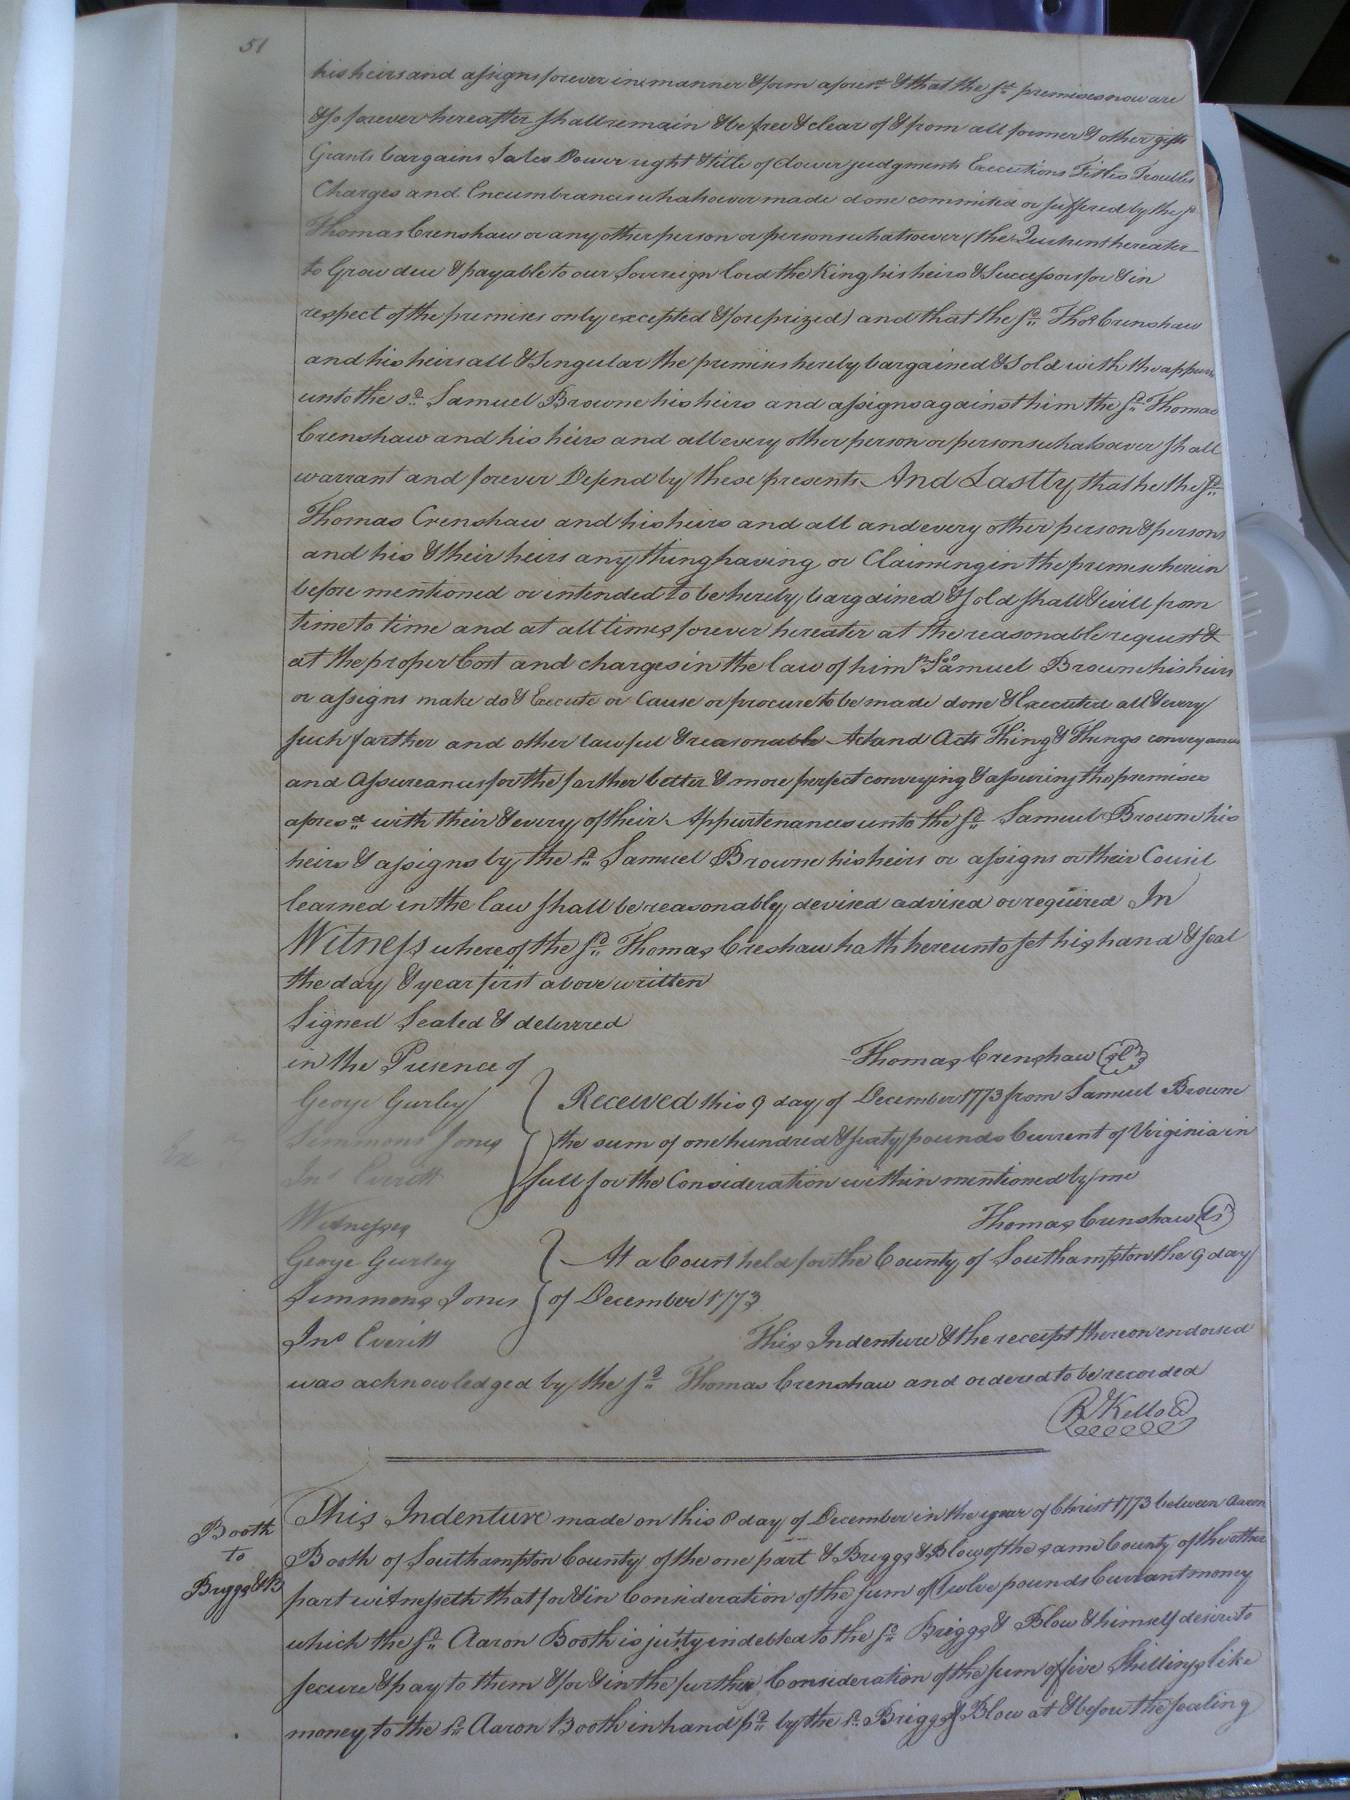 51
his heirs and assigns forever in manner & form afores.d & that the s.d premises now are
& so forever hereafter shall remain & be free & clear of & from all former & other gifts
Grants bargains Sales Dower right & title of dower judgments Executions Titles Troubles
Charges and Encumbrances whatsoever made done commited or suffered by the s.d
Thomas Crenshaw or any other person or persons whatsoever (the Quitrents hereater
to Grow due & payable to our Sovereign lord the King his heirs & Successors for & in
respect of the premises only excepted & foreprized) and that the s.d Tho.s Crenshaw
and his heirs all & Singular the premises hereby bargained & Sold with the appurs
unto the s.d Samuel Browne his heirs and assigns against him the s.d Thomas
Crenshaw and his heirs and all every other person or persons whatsoever shall
warrant and forever Defend by these presents And Lastly that he the s.d
Thomas Crenshaw and his heirs and all and every other person & persons
and his & their heirs any thing having or Claiming in the premises herein
before mentioned or intended to be hereby bargained & Sold shall & will from
time to time and at all times forever hereater at the reasonable request &
at the proper Cost and charges in the law of him Samuel Browne his heirs
or assigns make do & Execute or Cause or procure to be made done & Executed all & every
such farther and other lawful & reasonable Act and Acts Thing & Things conveyances
and Assureances for the farther better & more perfect conveying & assuring the premises
afores.d with their & every of their Appurtenances unto the s.d Samuel Browne his
heirs & assigns by the s.d Samuel Browne his heirs or assigns or their Cousil
learned in the law shall be reasonably devised advised or required In
Witness whereof the s.d Thomas Creshaw hath hereunto set his hand & seal
the day & year first above written
Signed Sealed & delivered
in the Presence of Thomas Crenshaw
George Gurley Received this 9 day of December 1773 from Samuel Browne
Simmons Jones the sum of one hundred & sixty pounds Current of Virginia in
Jno Everitt full for the Consideration within mentioned by me
Witnesses Thomas Crenshaw
George Gurley At a Court held for the County of Southampton the 9 day
Simmons Jones of December 1773
Jno Everitt This Indenture & the receipt thereon endorsed
was acknowledged by the s.d Thomas Crenshaw and ordered to be recorded
R Kello
Booth
to
Briggs & B
This Indenture made on this 8 day of December in the year of Christ 1773 between Aaron
Booth of Southampton County of the one part & Briggs & Blow of the same County of the other
part witnesseth that for & in Consideration of the sum of Twelve pounds Currant money
which the s.d Aaron Booth is justly indebted to the s.d Briggs & Blow & himself desire to
secure & pay to them & for & in the further Consideration of the sum of five Shillings like
money to the s.d Aaron Booth in hand p.d by the s.d Briggs & Blow at & before the sealing